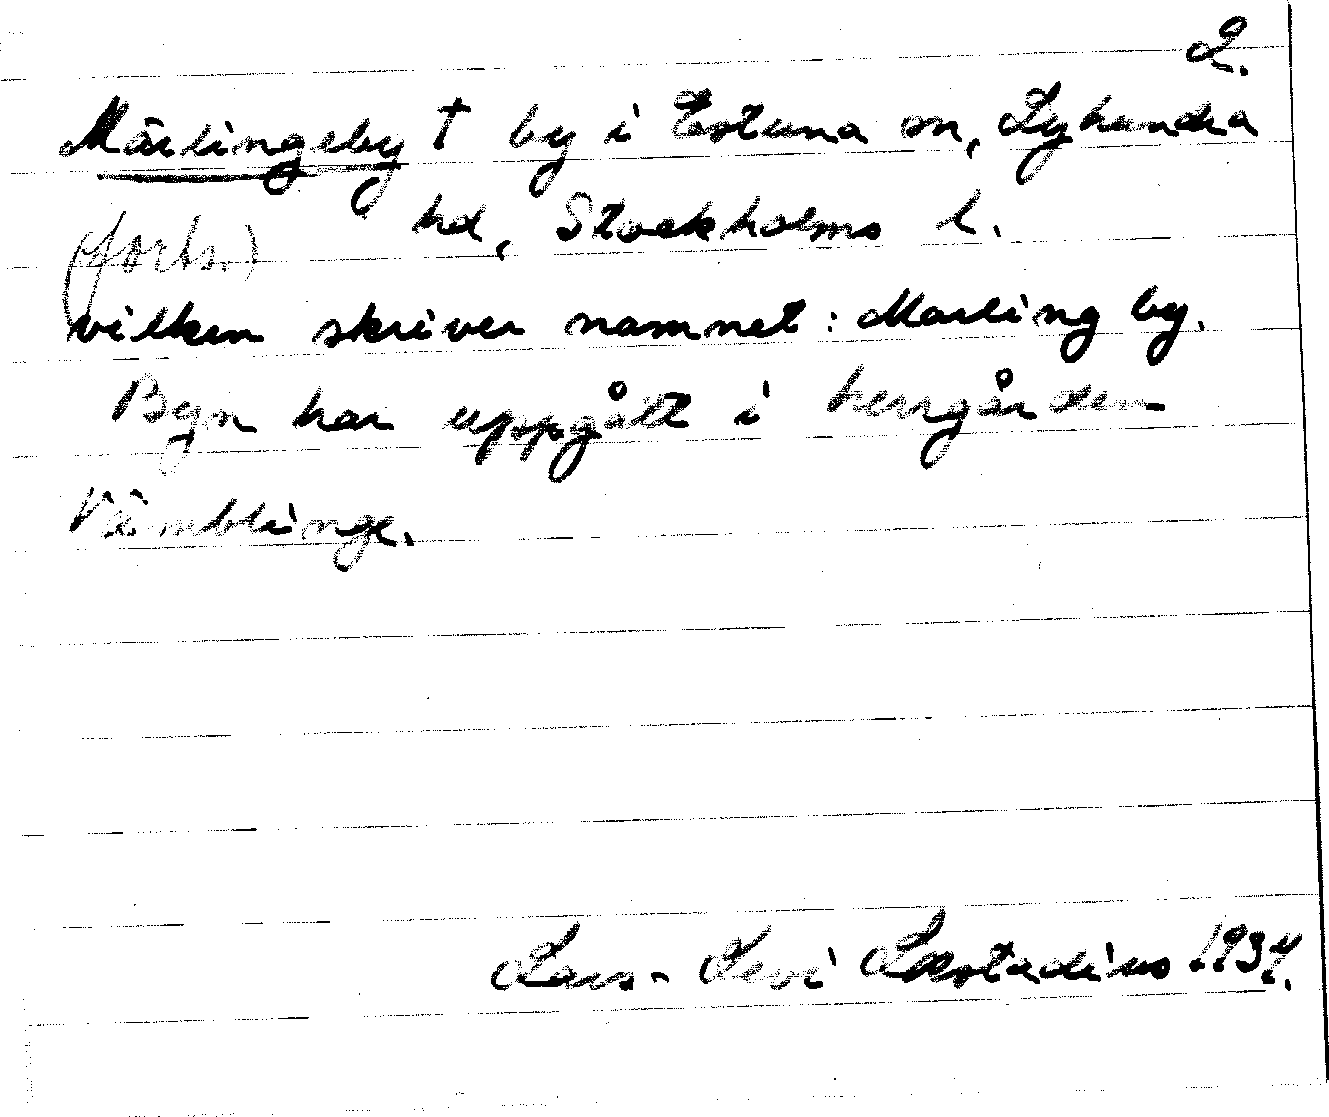 2.
Märlingsby † by i Estuna sn, Lyhundra
hd, Stockholms l.
(forts.)
vilken skriver namnet: Marling by.
Byn har uppgått i herrgården
Vämblinge.
Lars-Levi Læstadius 1934.